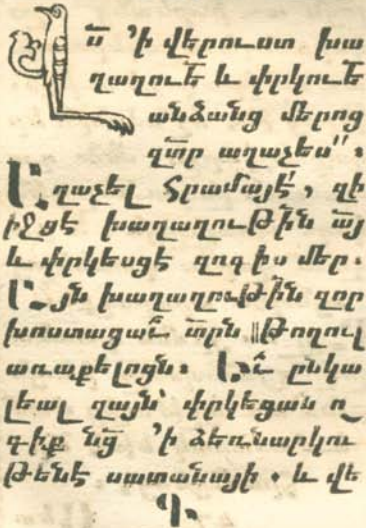 Վս̃ ՚ի վերուստ խա
ղաղուէ̃ և փրկուէ̃
անձանց մերոց
զտ̃ր աղաչես՛՛։
Աղաչել հրամայէ՛, զի
իջցէ խաղաղութի̃ն ա̃յ
և փրկեսցէ զոգիս մեր.
Այն խաղաղութի̃ն զոր
խոստացաւ̃ տր̃ն թողուլ
առաքելոցն։ Եւ̃ ընկա
լեալ զայն՝ փրկեցան ո
գիք նց̃ ՚ի ձեռնարկու
թենէ սատանայի. և վե
Գ.